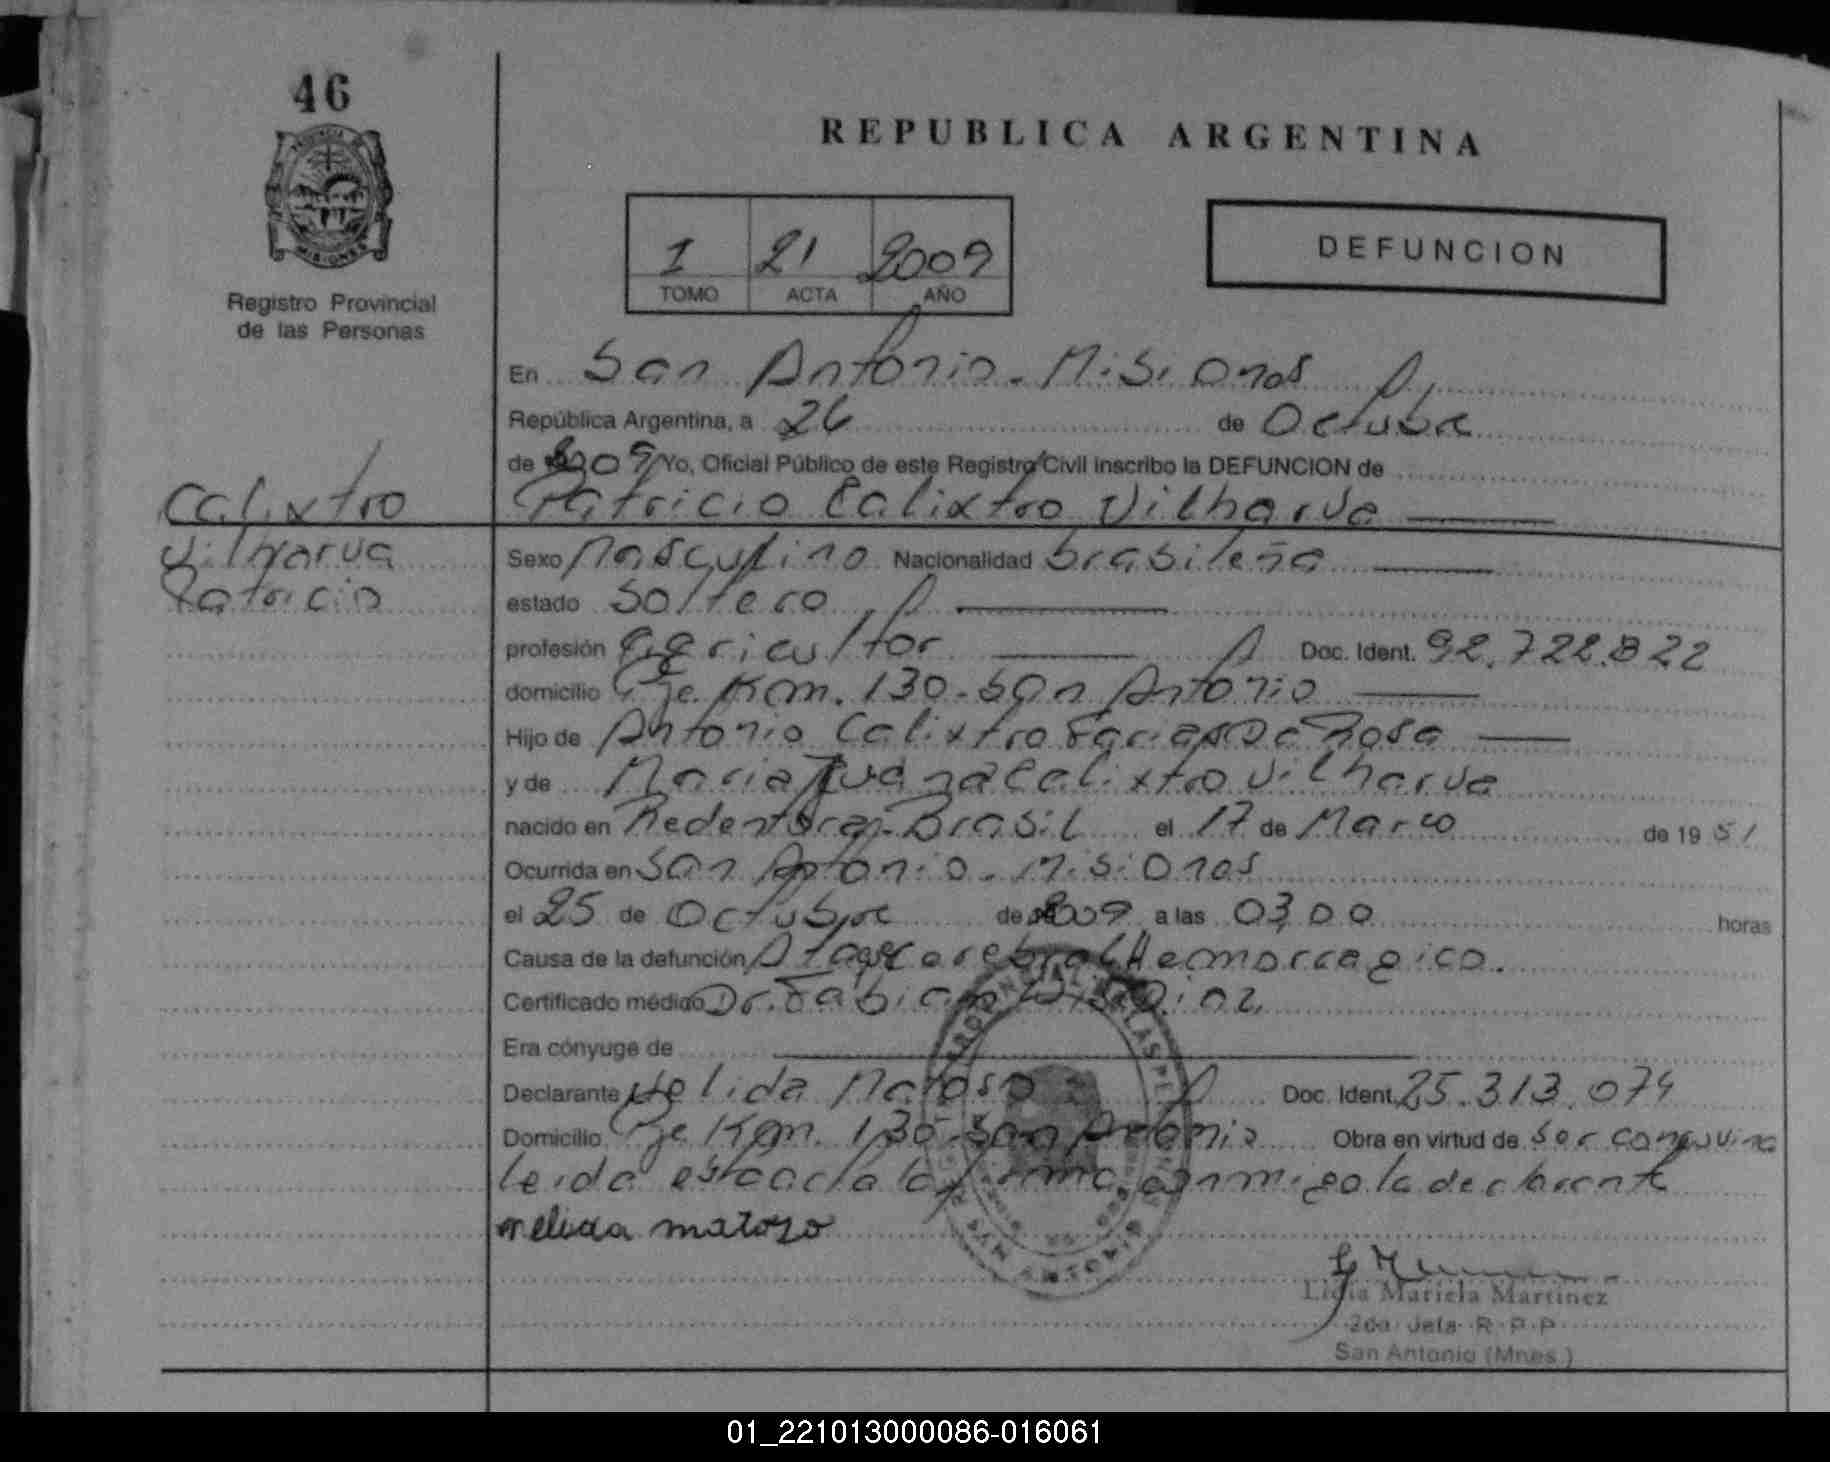 46
PROVINCIA DE
MISIONES
Registro Provincial
de las Personas
REPUBLICA ARGENTINA
1 21 2009
TOMO ACTA AÑO
DEFUNCION
En San Antonio - Misiones
República Argentina, a 26 de Octubre
de 2009 Yo, Oficial Público de este Registro Civil inscribo la DEFUNCION de
Patricio Calixtro Vilharva
Calixtro
Vilharva
Patricio
Sexo Masculino Nacionalidad brasileña
estado Soltero
profesión Agricultor Doc. Ident. 92.722.822
domicilio Pje Km. 130 - San Antonio
Hijo de Antonio Calixtro Farias Da Rosa
y de Maria Juana Calixtro Vilharva
nacido en Redentora - Brasil el 17 de Marzo de 1951
Ocurrida en San Antonio - Misiones
el 25 de Octubre de 2009 a las 03,00 horas
Causa de la defunción Ataque Cerebral Hemorragico.
Certificado médico Dr. Fabian Diaz
Era cónyuge de
Declarante Nelida Matoso Doc. Ident. 25.313.074
Domicilio Pje Km. 130 San Antonio Obra en virtud de Ser concuvina
leida esta acta la firma conmigo la declarante
nelida matozo
Lidia Mariela Martinez
2da Jefa R.P.P
San Antonio (Mnes.)
01_221013000086-016061